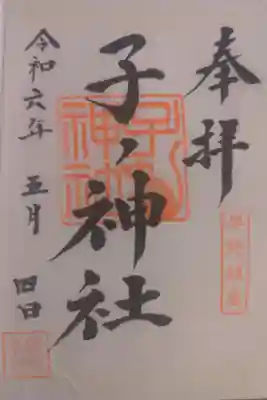 奉拝
子ノ神社
令和六年 五月 四日